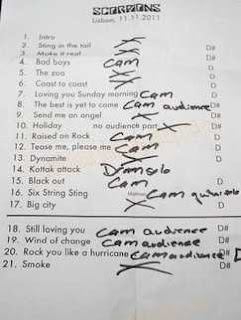 SCORPIONS
Lisbon, 11.11.2011
1. Intro X
2. Sting in the tail X D#
3. Make it real X D#
4. Bad boys cam D
5. The zoo X D
6. Coast to coast X D
7. Loving you Sunday morning cam D
8. The best is yet to come cam audience D#
9. Send me an angel X D#
10. Holiday no audience part X D#
11. Raised on Rock cam D
12. Tease me, please me cam D
13. Dynamite X D#
14. Kottak attack
15. Black out cam D
16. Six String Sting cam guitar solo
17. Big city X D
18. Still loving you cam audience D#
19. Wind of change cam audience D#
20. Rock you like a hurricane cam audience D#
21. Smoke X D#